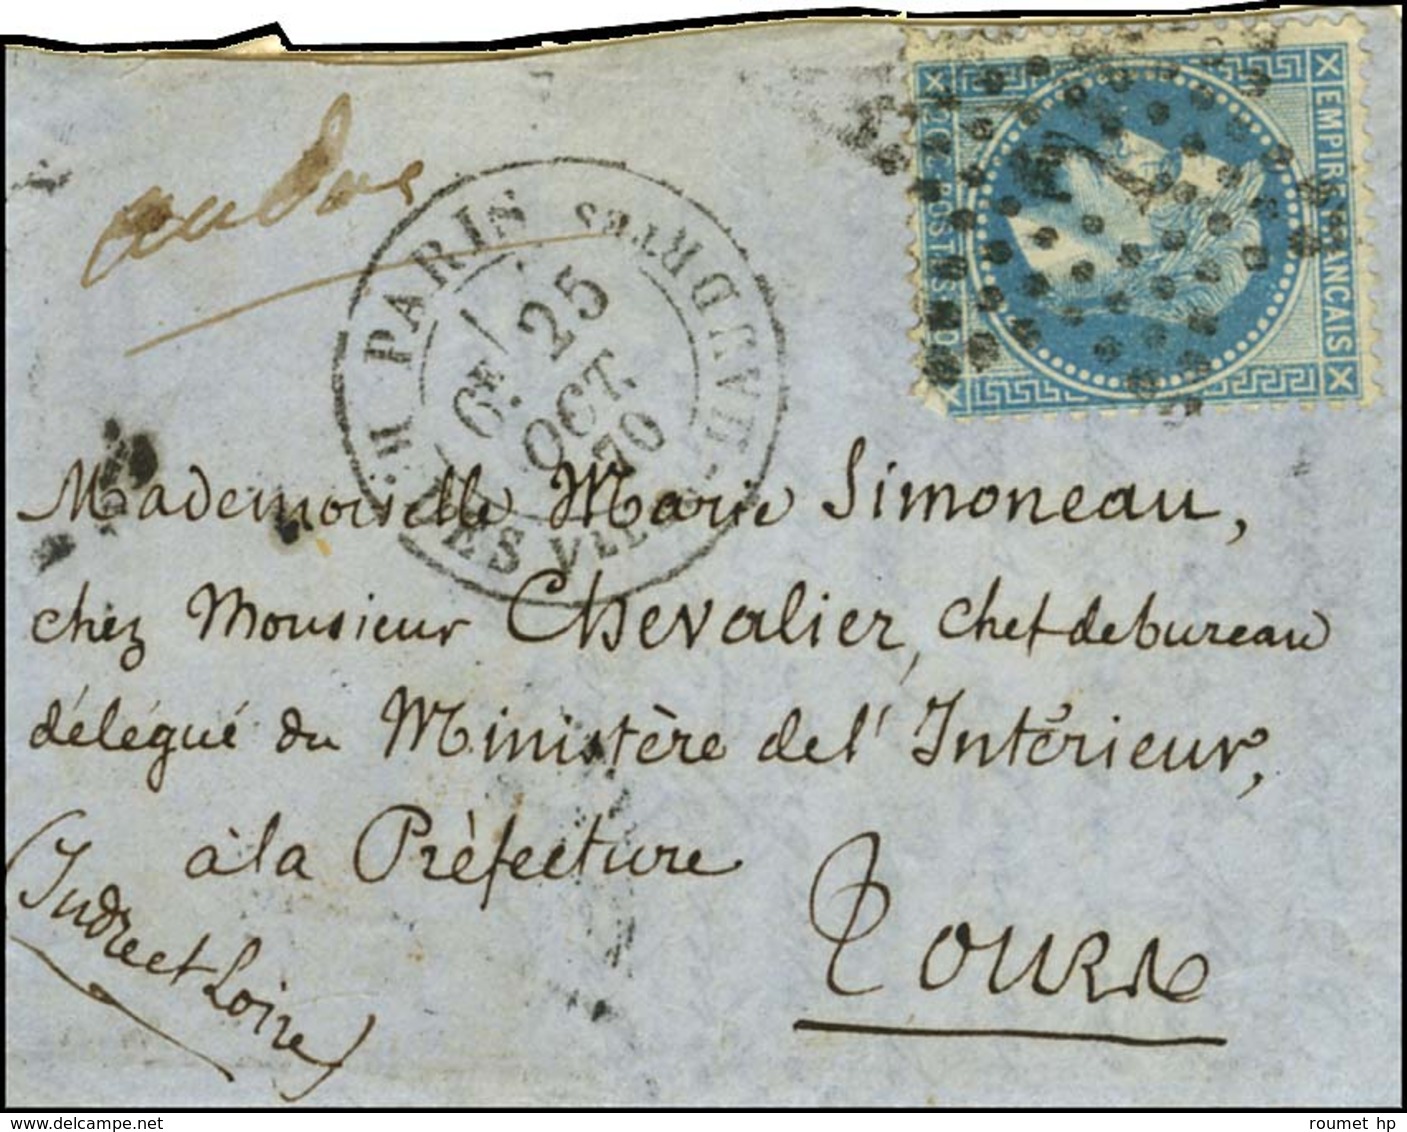 EMPIRE FRANÇAIS
20 C POSTES 20 C
PARIS
R. DES VIELLES HAUDRTES
6E
25
OCT.
70
Mademoiselle Marie Simoneau,
chez Monsieur Chevalier, chef de bureau
délégué du Ministère de l'Intérieur,
à la Préfecture
Tours
(Indre et Loire)
roumet hp